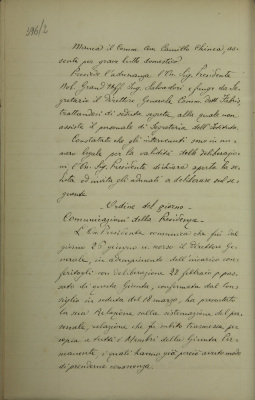 296/2
Manca il Comm. Avv. Camillo Chinea, as-
sente per grave lutto domestico.
Presiede l'adunanza l'On. Sig. Presidente
Nob. Grand'Uff. Ing. Salvadori e funge da Se-
gretario il Direttore Generale Comm. Dott. Fabris,
trattandosi di seduta segreta, alla quale non
assiste il personale di Segreteria dell'Istituto.
Constatato che gli intervenuti sono in nu-
mero legale per la validità delle deliberazio-
ni l'On. Sig. Presidente dichiara aperta la se-
duta ed invita gli adunati a deliberare sul se-
guente
Ordine del giorno
Comunicazioni della Presidenza.
L'On. Presidente comunica che fin dal
giorno 25 giugno u. scorso il Direttore Ge-
nerale, in adempimento dell'incarico con-
feritogli con deliberazione 28 febbraio p. pas-
sato di questa Giunta, confermata dal Con-
siglio in seduta del 18 marzo, ha presentata
la sua Relazione sulla sistemazione del per-
sonale, relazione che fu subito trasmessa per
copia a tutti i Membri della Giunta Per-
manente i quali hanno già perciò avuto modo
di prenderne conoscenza.